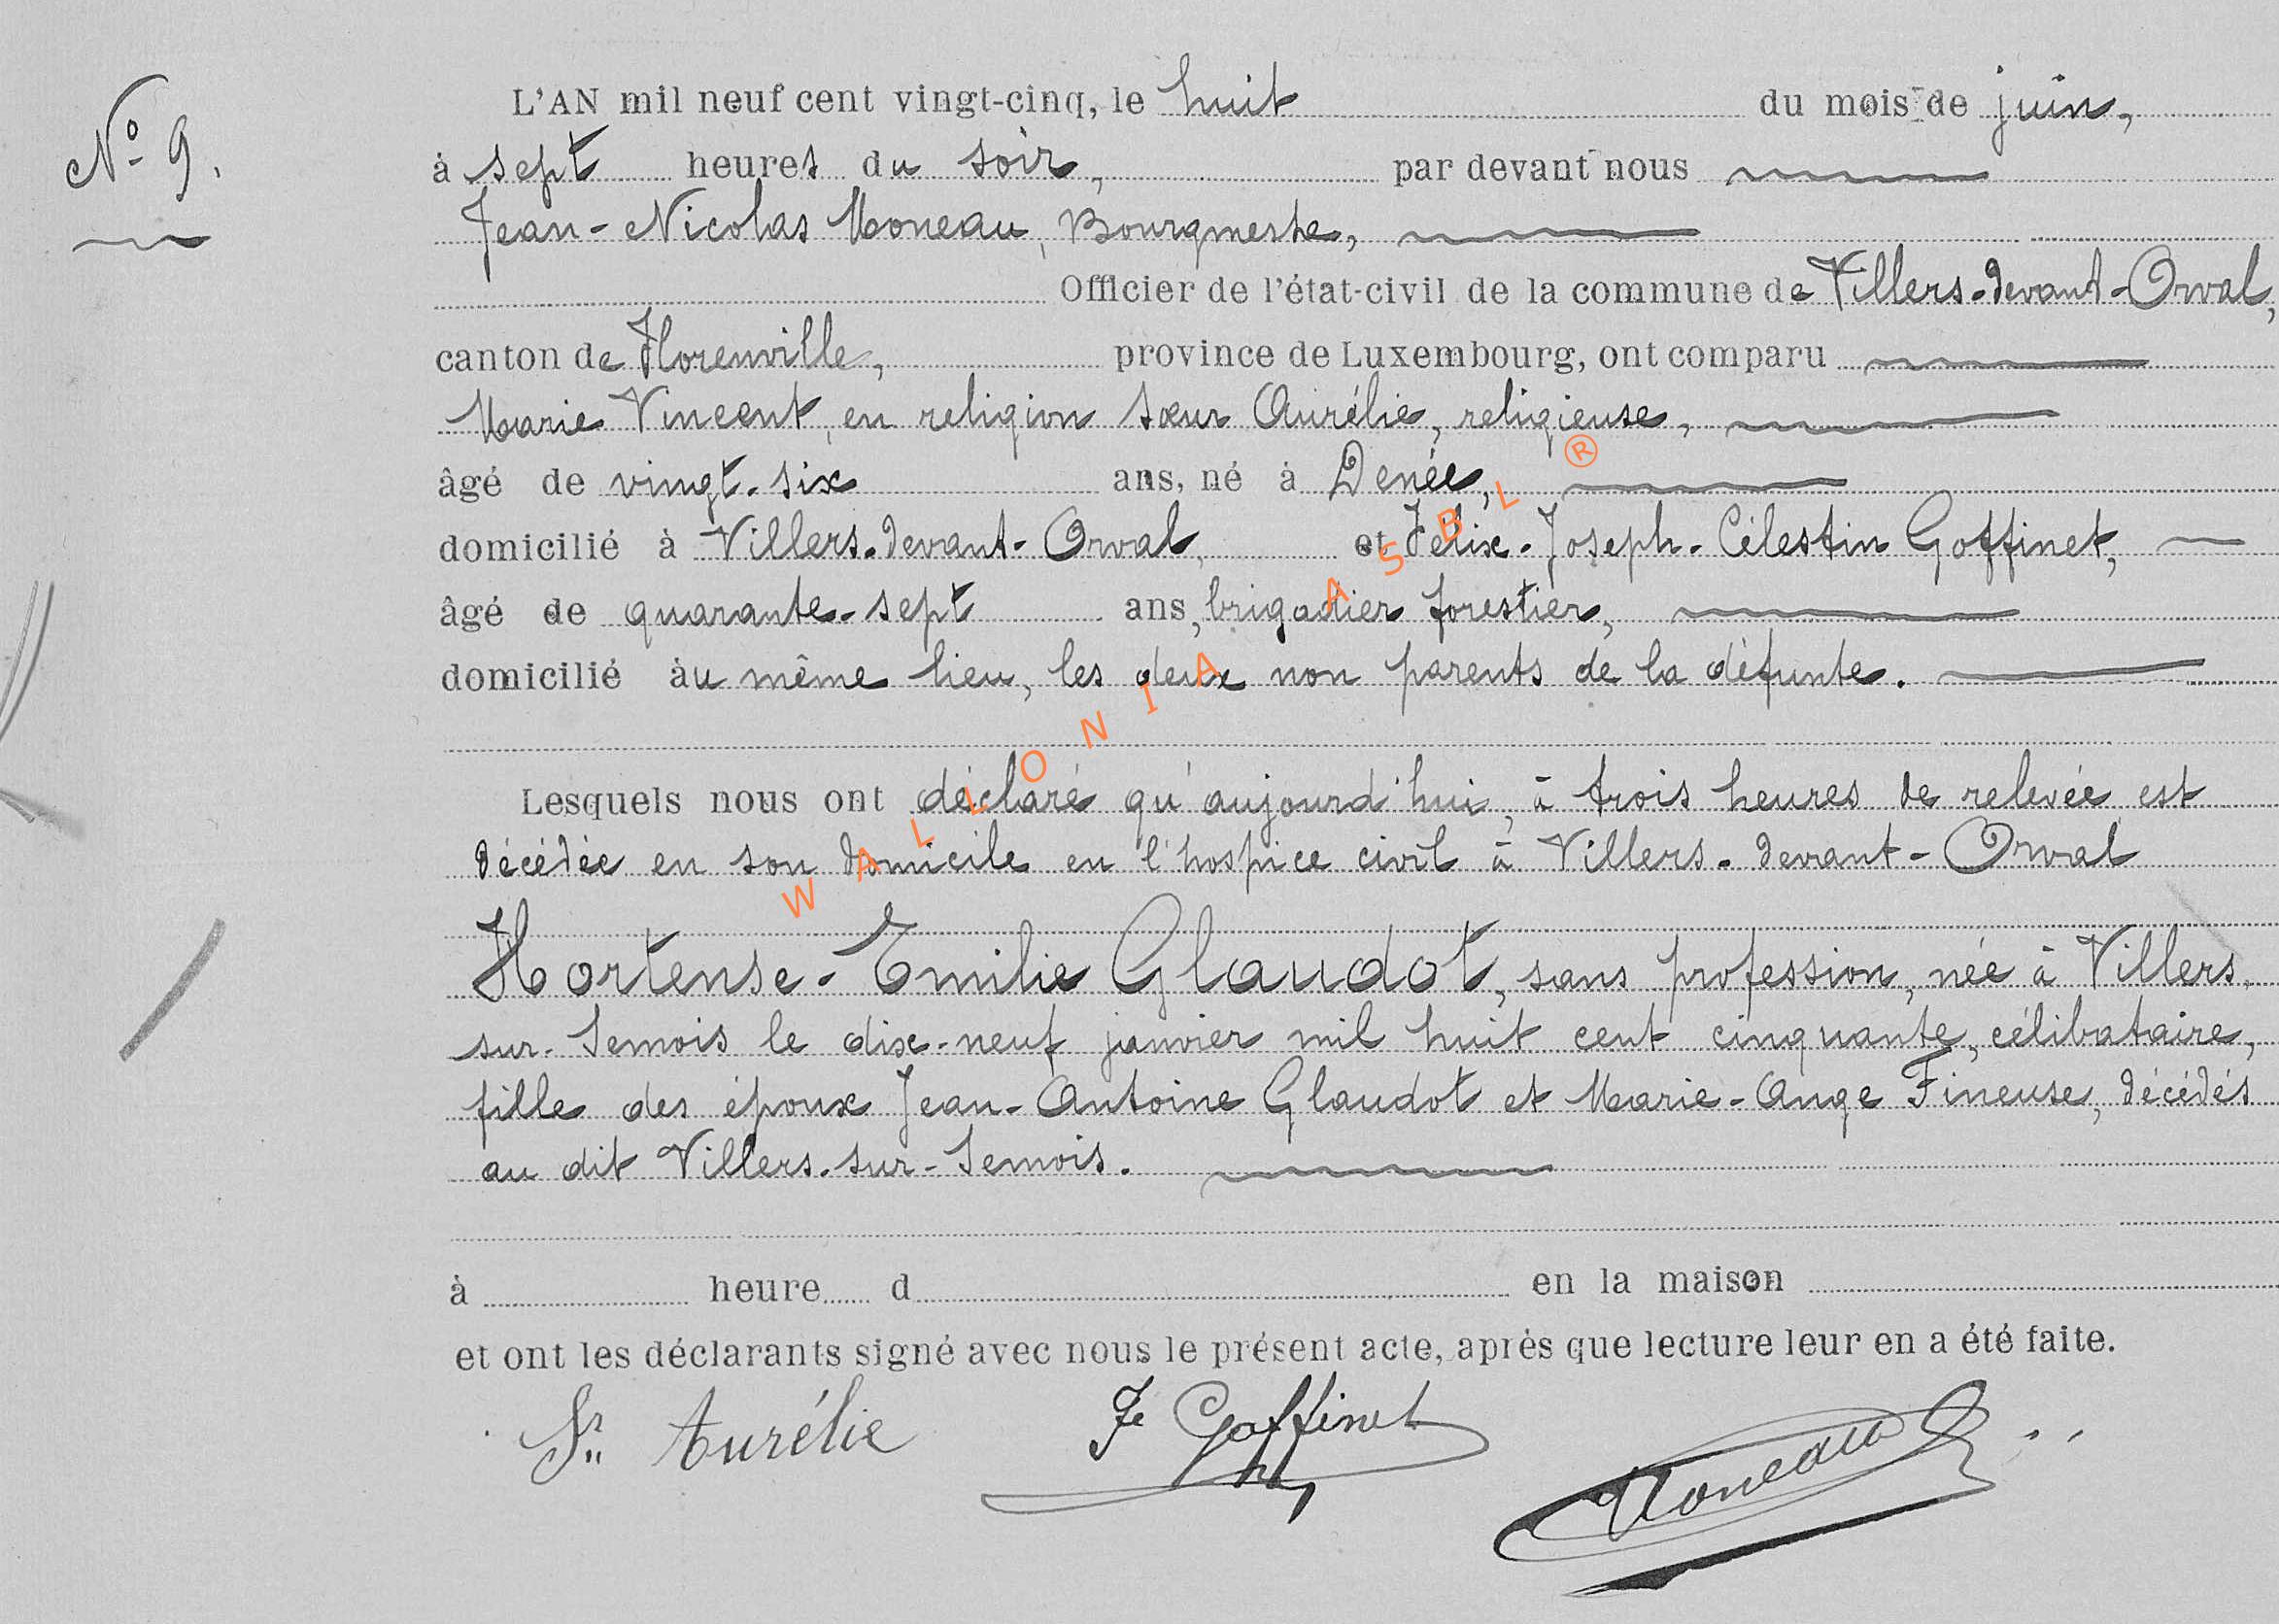 N° 9.
L'AN mil neuf cent vingt-cinq, le huit du mois de juin,
à sept heures du soir, par devant nous
Jean-Nicolas Moneau, Bourgmestre,
Officier de l'état-civil de la commune de Villers-devant-Orval,
canton de Florenville, province de Luxembourg, ont comparu
Marie Vincent, en religion sœur Aurélie, religieuse,
âgé de vingt-six ans, né à Denée,
domicilié à Villers-devant-Orval, et Félix-Joseph-Célestin Goffinet,
âgé de quarante-sept ans, brigadier forestier,
domicilié àu même lieu, les deux non parents de la défunte.
Lesquels nous ont déclaré qu'aujourd'hui, à trois heures de relevée est
décédée en son domicile en l'hospice civil à Villers-devant-Orval
Hortense-Emilie Glaudot, sans profession, née à Villers-
sur-Semois le dix-neuf janvier mil huit cent cinquante, célibataire,
fille des époux Jean-Antoine Glaudot et Marie-Ange Fineuse, décédés
au dit Villers-sur-Semois.
à heure d en la maison
et ont les déclarants signé avec nous le présent acte, après que lecture leur en a été faite.
Sr Aurélie Fe Goffinet Moneau
WALLONIA ASBL ®